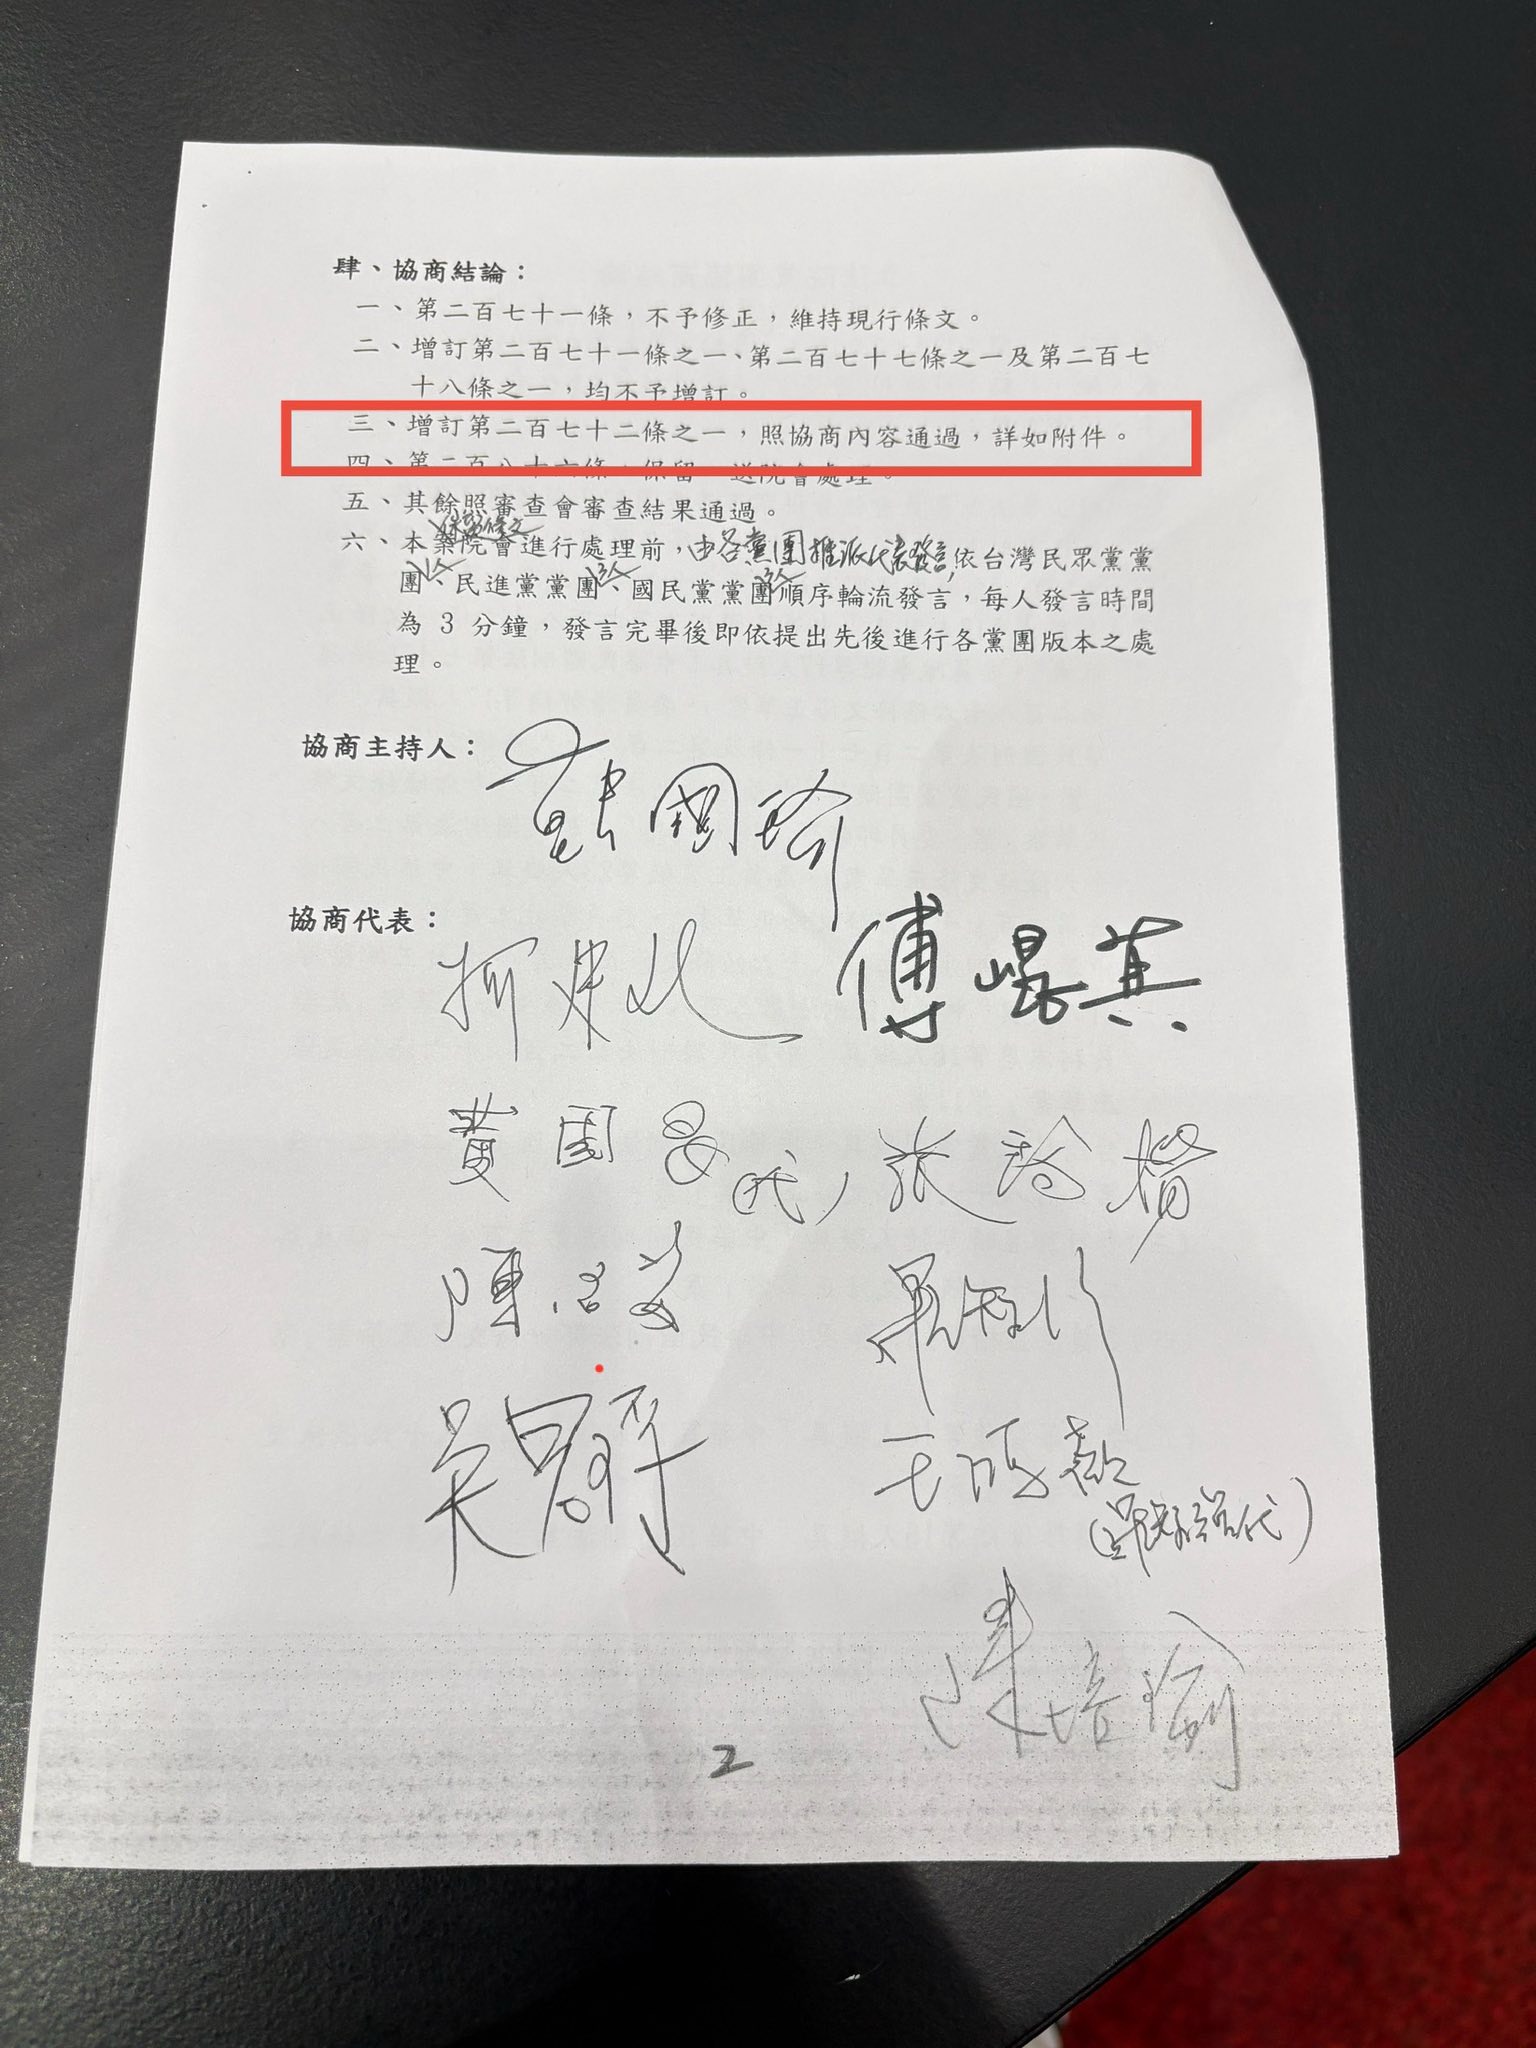 肆、協商結論：
一、第二百七十一條，不予修正，維持現行條文。
二、增訂第二百七十一條之一、第二百七十七條之一及第二百七
十八條之一，均不予增訂。
三、增訂第二百七十二條之一，照協商內容通過，詳如附件。
四、第二百八十六條，保留，送院會處理。
五、其餘照審查會審查結果通過。
保留條文
六、本案院會進行處理前，由各黨團推派代表發言，依台灣民眾黨黨
團、民進黨黨團、國民黨黨團順序輪流發言，每人發言時間
為 3 分鐘，發言完畢後即依提出先後進行各黨團版本之處
理。
協商主持人：
韓國瑜
協商代表：
柯建銘 傅崐萁
黃國昌(代) 張啓楷
陳培瑜
2